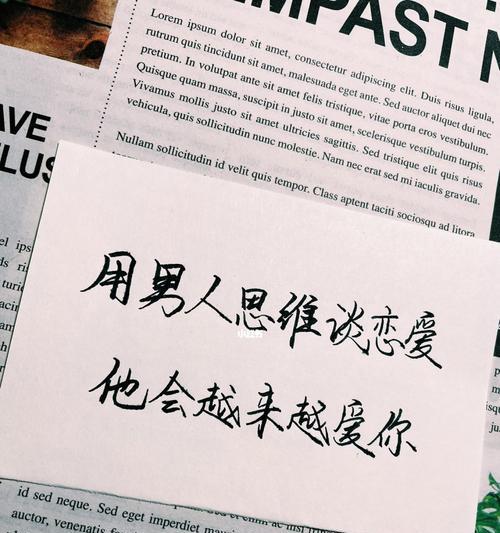 MPAST N
Lorem ipsum dolor sit amet, consectetur adipiscing elit. Duis risus ligula,
rutrum quis tincidunt sit amet, malesuada eget ante. Sed auctor aliquet dui nec
pretium. In volutpat ante sit amet felis tristique, vitae porta eros vestibulum.
Quisque quam massa, suscipit in justo sit amet, scelerisque vestibulum turpis.
Vivamus mollis justo sit amet ultricies sagittis. Sed tristique elit quis risus
vehicula, quis sollicitudin nunc molestie. Nam nec erat sed mi iaculis gravida.
Nullam sollicitudin id velit quis tempor. Class aptent taciti sociosqu ad litora
AVE
LUS
用男人思维谈恋爱
小红书
他会越来越爱你
id sed neque. Sed eget
auctor, venenatis
eget imperdiet